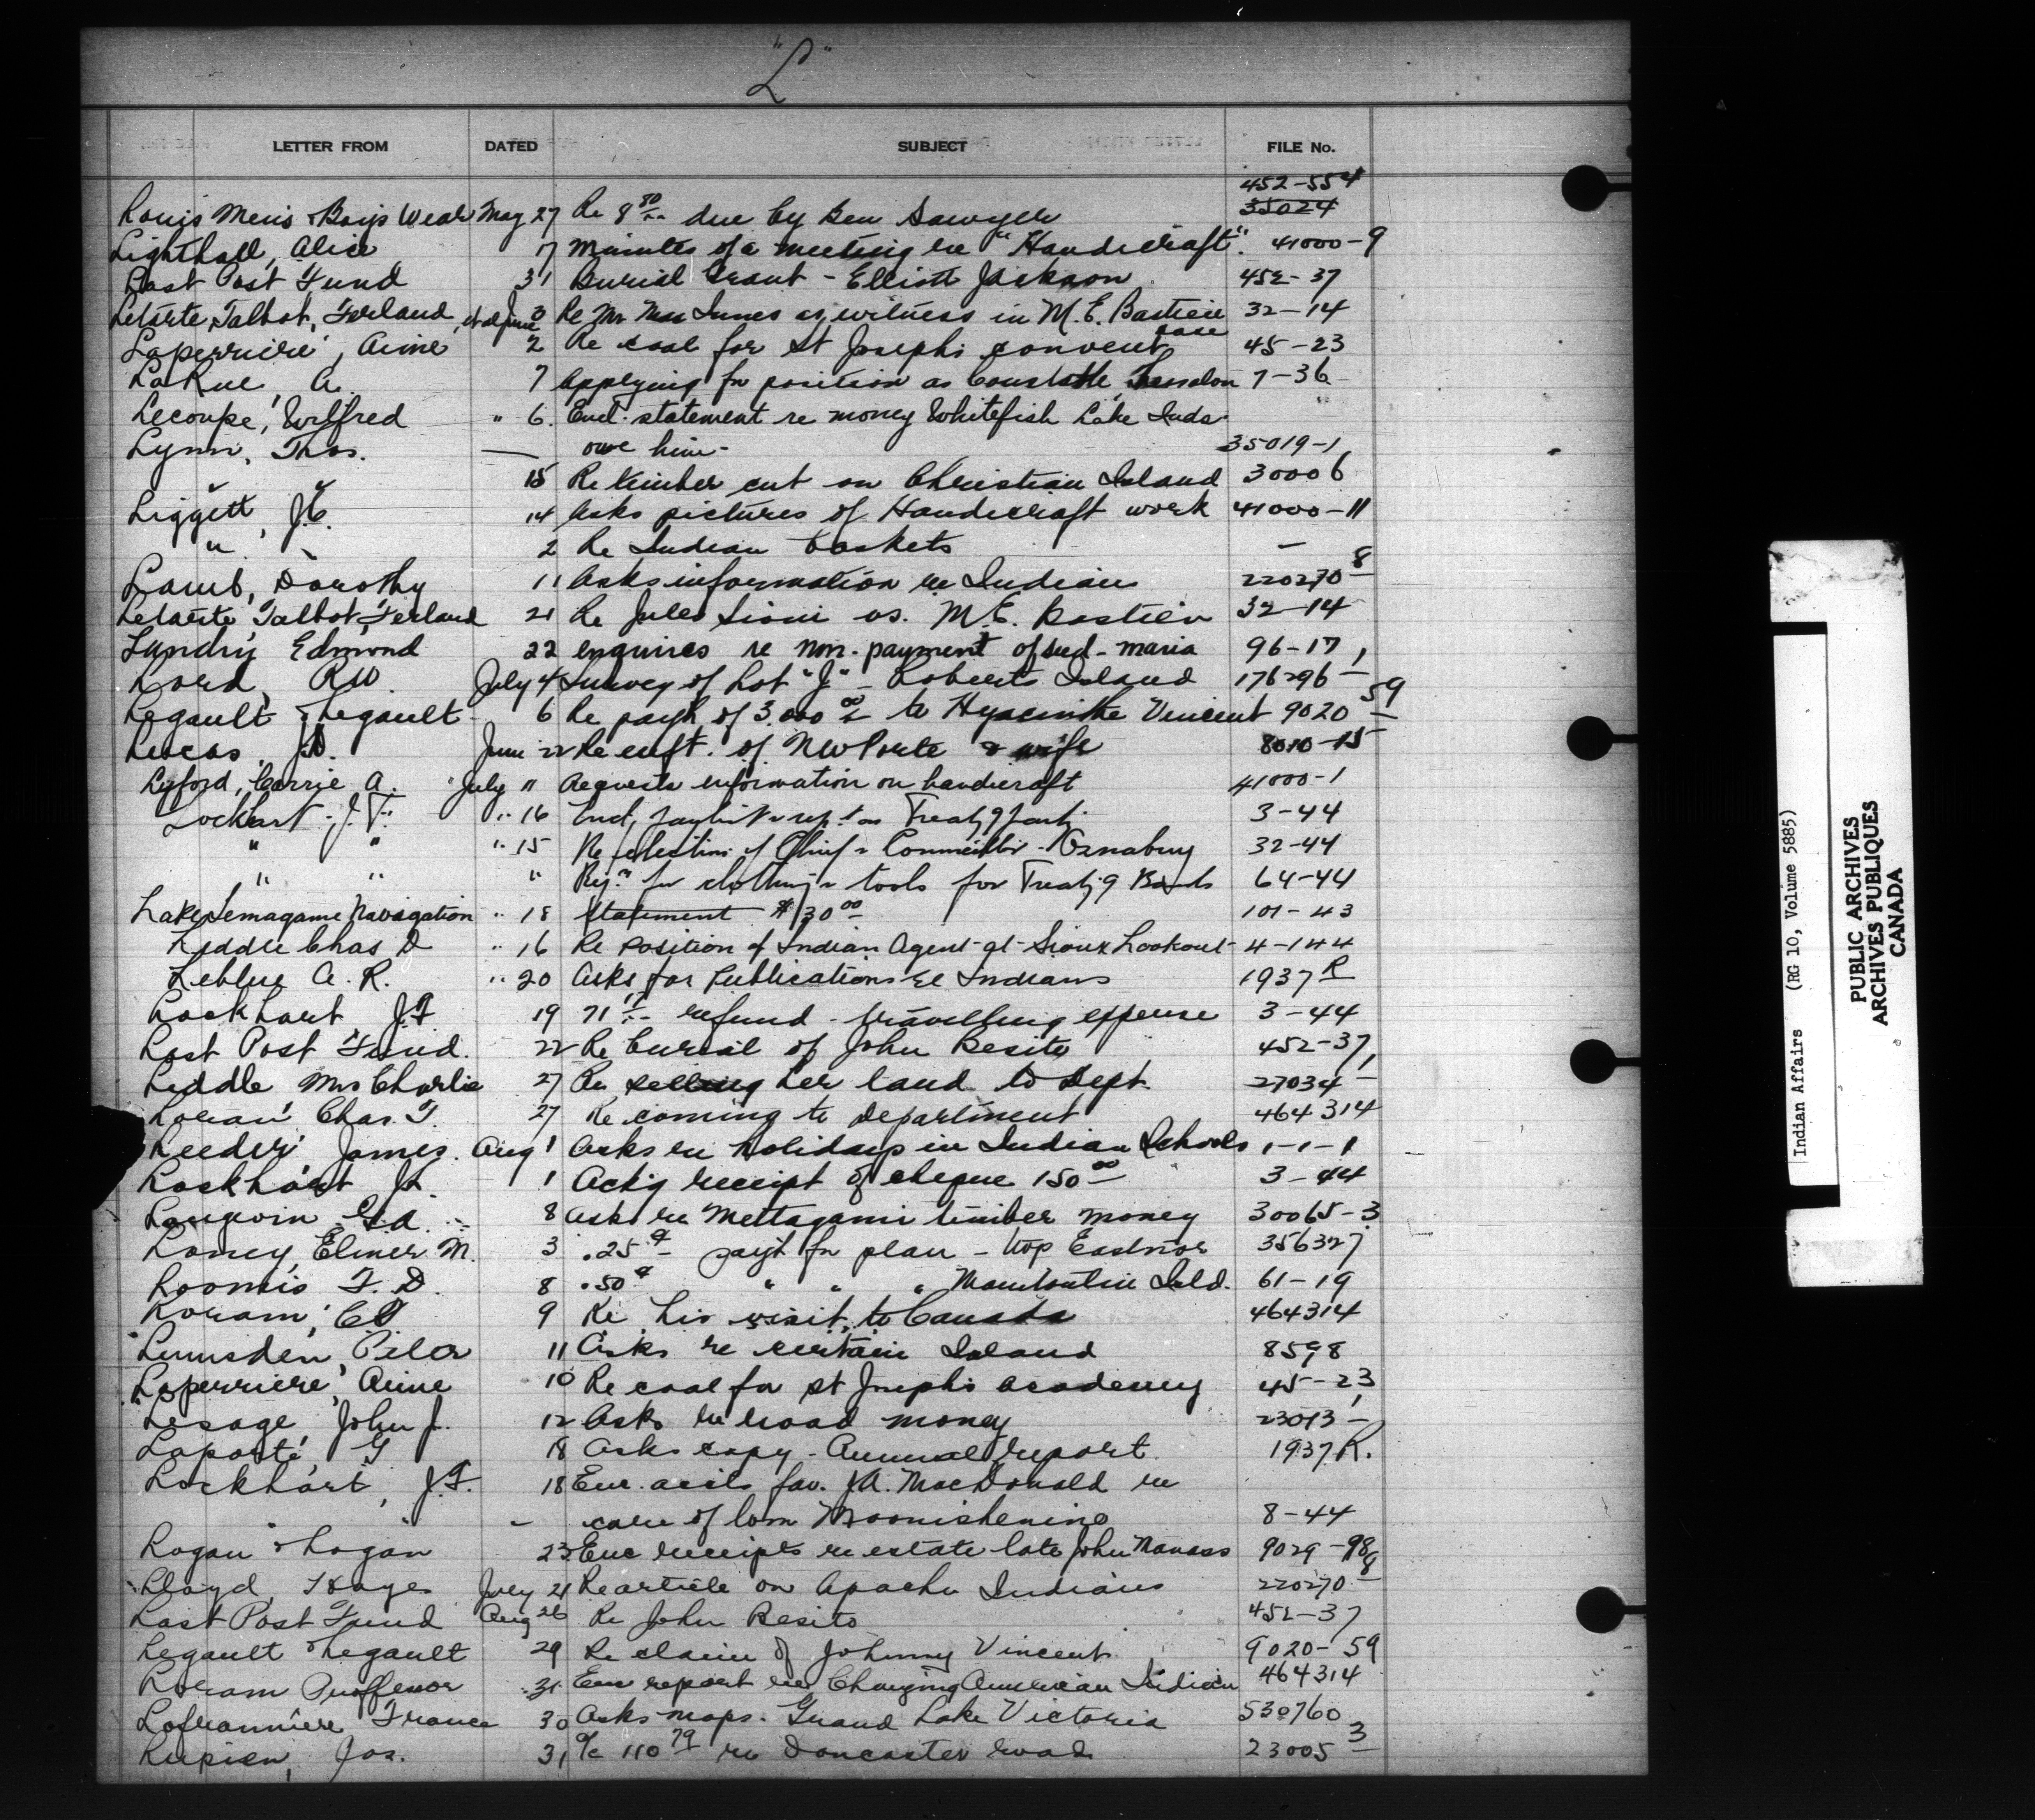 "L"
LETTER FROM DATED SUBJECT FILE No.
452-554
Louis Men's & Boys Wear May 27 Re 8 80 due by Ben Sawyer 35024
Lighthall, Alice 17 Minutes of a meeting re "Handicraft". 41000-9
Last Post Fund 31 Burial Grant - Elliott Jackson 452-37
Letarte, Talbot, Ferland, et al June 3 Re Mr Innes as witness in M.E. Bastien 32-14
case
Laperriere, Aime 2 Re coal for St Joseph's convent 45-23
LaRue, A. 7 Applying for position as Constable, Thessalon 7-36
Lecoupe, Wilfred " 6. Encl. statement re money Whitefish Lake Inds.
Lynn, Thos. — owe him - 35019-1
" " 15 Re timber cut on Christian Island 30006
Liggett, J.C. 14 Asks pictures of Handicraft work 41000-11
" " 2 Re Indian baskets —
Lamb, Dorothy 11 Asks information re Indians 220270-8
Letarte, Talbot, Ferland 21 Re Jules Sioui vs. M.E. Bastien 32-14
Landry, Edmond 22 enquires re non-payment of sud - Maria 96-17
Lord, R.W. July 4 Survey of Lot "J" - Roberts Island 176296-1
Legault & Legault 6 Re paym. of 3.000 00 to Hyacinthe Vincent 9020-59
Lucas, J.D. June 22 Re enft. of N W Porte & wife 8010-15
Lyford, Carrie A. July " Requests information on handicraft 41000-1
Lockhart J.F. " 16 Encl. Treaty 9 3-44
" " " 15 Re election of Chief & Councillor - Osnaburg 32-44
" " " Req.n for clothing & tools for Treaty 9 Bands 64-44
Lake Temagami Navigation " 18 Statement $130 00 101-43
Liddle Chas D " 16 Re position of Indian Agent at Sioux Lookout 4-144
Leblue A. R. " 20 Asks for Publications re Indians 1937 R
Lockhart J.F 19 71 17 refund - travelling expense 3-44
Last Post Fund. 22 Re burial of John Besito 452-37
Liddle Mrs Charlie 27 Re selling her land to Dept. 27034-1
Loram Chas. T. 27 Re coming to Department 464314
Leeder James. Aug 1 Asks re holidays in Indian Schools 1-1-1
Lockhart J. 1 Ack'g receipt of cheque 150 00 3-44
Langevin G.A. 8 asks re Mettagami timber money 30065-3
Loney, Elmer M. 3 .25 ¢ payt for plan - twp Eastnor 356327
Loomis F. D. 8 .50 ¢ " " " Manitoulin Isld. 61-19
Loram, C T 9 Re his visit to Canada 464314
Lumsden, Peter 11 Asks re certain Island 8598
Laperriere, Aime 10 Re coal for St Joseph's academy 45-23
Lesage, John J. 12 Asks re road money 23013-1
Laporte, G 18 Asks copy - Annual report 1937 R.
Lockhart, J.F. 18 Enc. accts fav. J.A. MacDonald re
care of Tom Moonishening 8-44
Logan & Logan 23 Enc receipts re estate late John Nanass 9029-98
Lloyd, Hoyes July 21 Re article on Apache Indians 220270-8
Last Post Fund Aug 26 Re John Besito 452-37
Legault & Legault 29 Re claim of Johnny Vincent 9020-59
Loram Proffessor 31 Enc report re Changing American Indian 464314
Laframniere France 30 Asks maps - Grand Lake Victoria 530760
Lupien, Jos. 31 a/c 110 79 re Doncaster road 23005-3
Indian Affairs (RG 10, Volume 5885)
PUBLIC ARCHIVES
ARCHIVES PUBLIQUES
CANADA